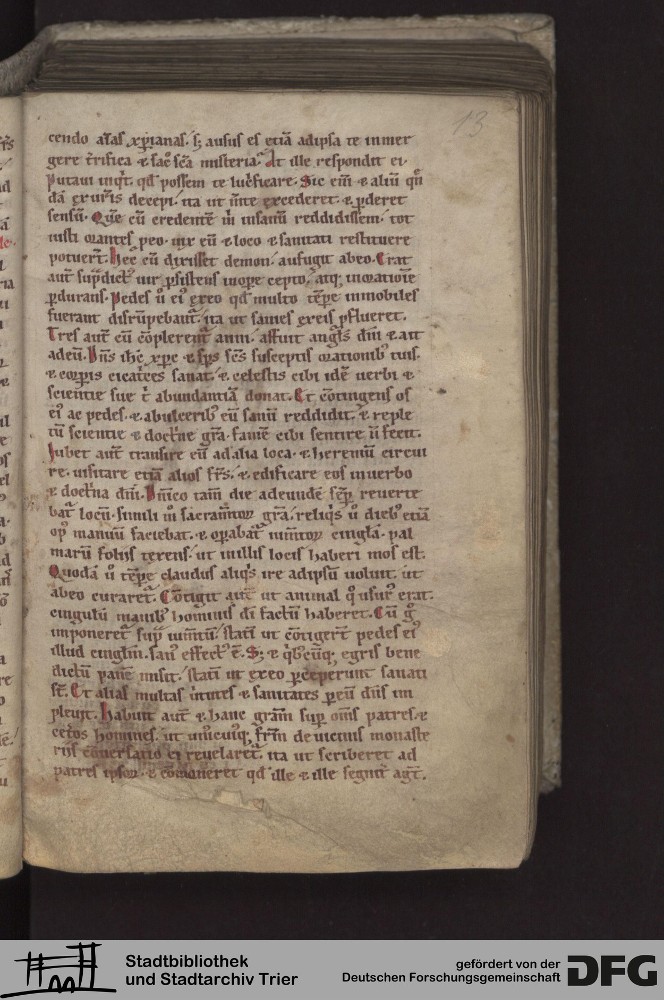 13
cendo aīas xp̄ianas. sꝫ ausus es etiā ad ipsa te inmer
gere t̄rifica ⁊ sac̄ sc̄a misteria. At ille respondit ei.
Putaui inqͥt. qd̄ possem te lucͥficare. Sic eni̅ ⁊ aliū qn̄
dā ex ur̄is decepi. ita ut m̄te excederet. ⁊ ꝑderet
sensū. Que cū credentē m̄ insanū reddidissem. tot
iusti orantes ꝓ eo. uix eū ⁊ loco ⁊ sanitati restituere
potuer̄t. Hec cū dixisset demon. aufugit ab eo. Erat
aut̄ supͣdictꝰ uir ꝑsistens in oꝑe cepto. atqꝫ in oratioe̅
ꝑdurans. Pedes u̅ eiꝰ ex eo qd̄ multo tēꝑe inmobiles
fuerant disrūpebant̄. ita ut sanies ex eis ꝓflueret.
Tres aut̄ cū cōplerent̄ anni. affuit angl̄s dn̄i ⁊ ait
ad eū. Dn̄s ih̄c xp̄c ⁊ sp̄s sc̄s susceptis orationibꝰ tuis.
⁊ corꝑis cicatͥces sanat. ⁊ celestis cibi idē uerbi ⁊
scientie sue t̄ abundantiā donat. Et cōtingens os
eiꝰ ac pedes. ⁊ ab ulceribꝰ eū sanū reddidit. ⁊ reple
tū scientie ⁊ doctͥne gr̄a. famē cibi sentire n̄ fecit.
Iubet aut̄ transire eū ad alia loca. ⁊ heremū circui
re. uisitare etiā alios fr̄s. ⁊ edificare eos in uerbo
⁊ doctͥna dn̄i. Dn̄ico tam̄ die ad eundē sēꝑ reuerte
bat̄ locū. simili m̊ sacramtoꝝ gr̄a. reliqͥs u̅ diebꝰ etiā
opꝰ manuū faciebat. ⁊ oꝑabat̄ iumtoꝝ cingla. pal
marū foliis texens. ut in illis locis haberi mos est.
Quodā u̅ tēꝑe claudus aliqͥs ire ad ipsū uoluit. ut
ab eo curaret̄. Cōtigit aut̄ ut animal qͦ usurꝰ erat.
cingulū manibꝰ hominis dī factū haberet. Cū gͦ
imponeret̄ supͣ iumtū. statī ut cōtiger̄t pedes eiꝰ
illud cinglm̄. sanꝰ effectꝰ ē. Sꝫ ⁊ qͥbꝰcūqꝫ egris bene
dictū panē misit. statī ut ex eo ꝑceperunt sanati
st̄. Et alias multas ūtutes ⁊ sanitates ꝑ eū dn̄s im
pleuit. Habuit aut̄ ⁊ hanc gr̄am sup̄ om̄s patres ⁊
cet̄os homines. ut uniꝰcuiꝰqꝫ fr̄m de uicinis monaste
riis conuersatio ei reuelaret̄. ita ut scriberet ad
patres ipsoꝝ. ⁊ cōmoneret qd̄ ille ⁊ ille segnit̄ agt̄.
Stadtbibliothek
und Stadtarchiv Trier
gefördert von der
Deutschen Forschungsgemeinschaft
DFG